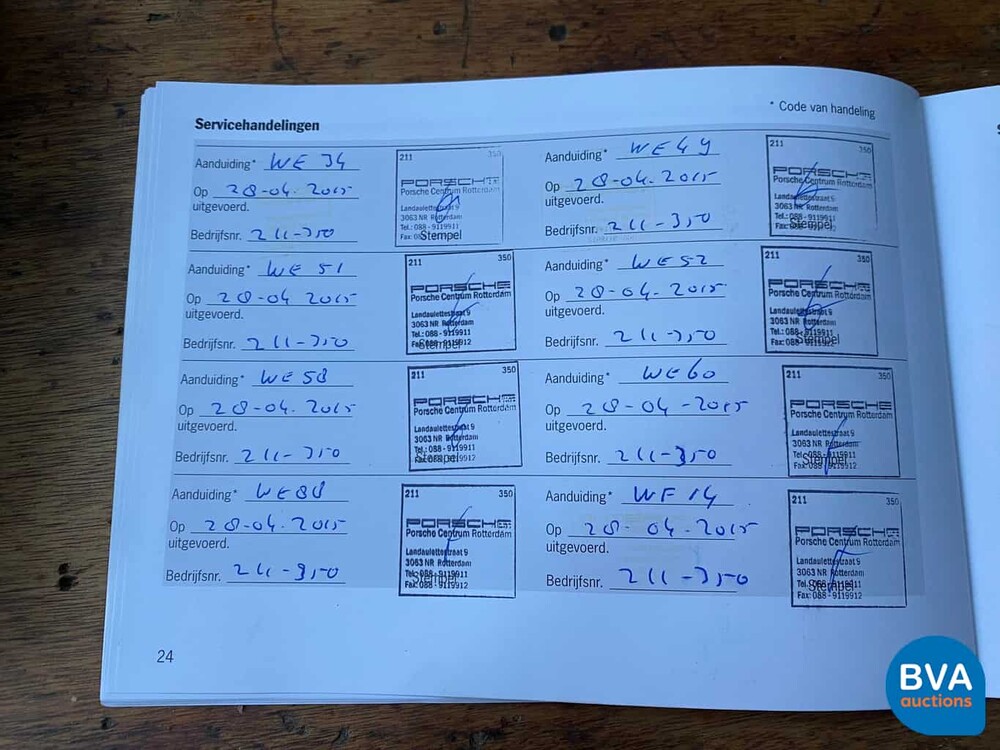 * Code van handeling
Servicehandelingen
Aanduiding* WE 34
Op 28-04-2015
uitgevoerd.
Bedrijfsnr. 211-350
211 350
PORSCHE
Porsche Centrum Rotterdam
Landaulettestraat 9
3063 NR Rotterdam
Tel.: 088-9119911
Stempel
Aanduiding* WE 49
Op 28-04-2015
uitgevoerd.
Bedrijfsnr. 211-350
211 350
PORSCHE
Porsche Centrum Rotterdam
Landaulettestraat 9
3063 NR Rotterdam
Tel.: 088-9119911
Stempel
Aanduiding* WE 51
Op 28-04-2015
uitgevoerd.
Bedrijfsnr. 211-350
211 350
PORSCHE
Porsche Centrum Rotterdam
Landaulettestraat 9
3063 NR Rotterdam
Tel.: 088-9119911
Fax: 088-9119912
Stempel
Aanduiding* WE 52
Op 28-04-2015
uitgevoerd.
Bedrijfsnr. 211-350
211 350
PORSCHE
Porsche Centrum Rotterdam
Landaulettestraat 9
3063 NR Rotterdam
Tel.: 088-9119911
Fax: 088-9119912
Stempel
Aanduiding* WE 58
Op 28-04-2015
uitgevoerd.
Bedrijfsnr. 211-350
211 350
PORSCHE
Porsche Centrum Rotterdam
Landaulettestraat 9
3063 NR Rotterdam
Tel.: 088-9119911
Fax: 088-9119912
Stempel
Aanduiding* WE60
Op 28-04-2015
uitgevoerd.
Bedrijfsnr. 211-350
211 350
PORSCHE
Porsche Centrum Rotterdam
Landaulettestraat 9
3063 NR Rotterdam
Tel.: 088-9119911
Fax: 088-9119912
Stempel
Aanduiding* WE88
Op 28-04-2015
uitgevoerd.
Bedrijfsnr. 211-350
211 350
PORSCHE
Porsche Centrum Rotterdam
Landaulettestraat 9
3063 NR Rotterdam
Tel.: 088-9119911
Fax: 088-9119912
Stempel
Aanduiding* WF 14
Op 28-04-2015
uitgevoerd.
Bedrijfsnr. 211-350
211 350
PORSCHE
Porsche Centrum Rotterdam
Landaulettestraat 9
3063 NR Rotterdam
Tel.: 088-9119911
Fax: 088-9119912
Stempel
24
BVA
auctions